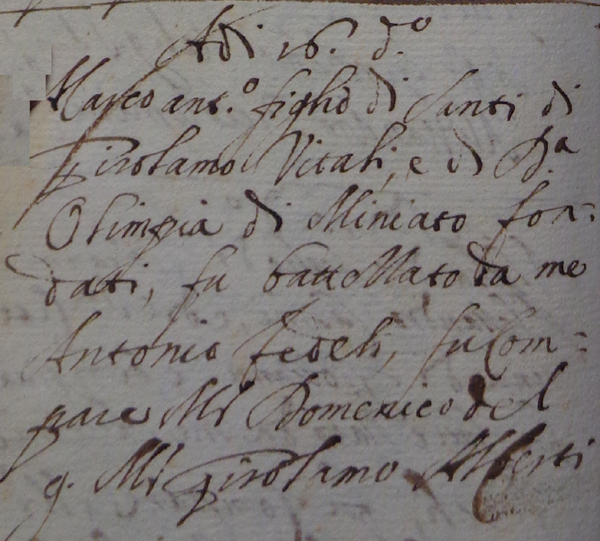 Adi 16. d.º
Marco ant.º figlio di Santi di
Girolamo Vitali, e di D.ª
Olimpia di Miniato fon=
dati, fu battezzato da me
Antonio Fedeli, fu Com=
pare Mr Domenico del
q. Mr Girolamo Alberti